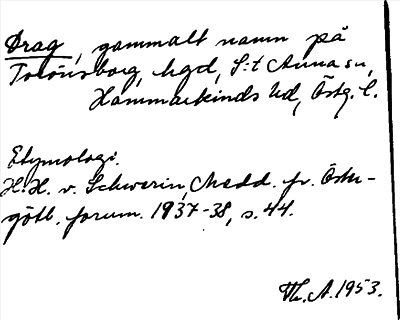 Drag, gammalt namn på
Torönsborg, hgd, S:t Anna sn,
Hammarkinds hd, Östg. l.
Etymologi.
H.H. v. Schwerin, Medd. fr. Östergötl. fornm. 1937-38, s. 44.
Th. A. 1953.